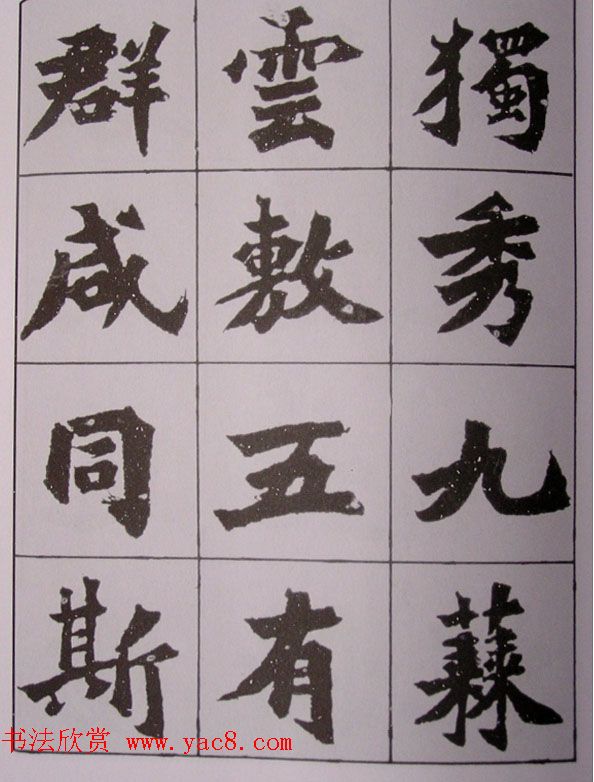 獨秀九蕀
雲敷五有
群咸同斯
书法欣赏 www.yac8.com